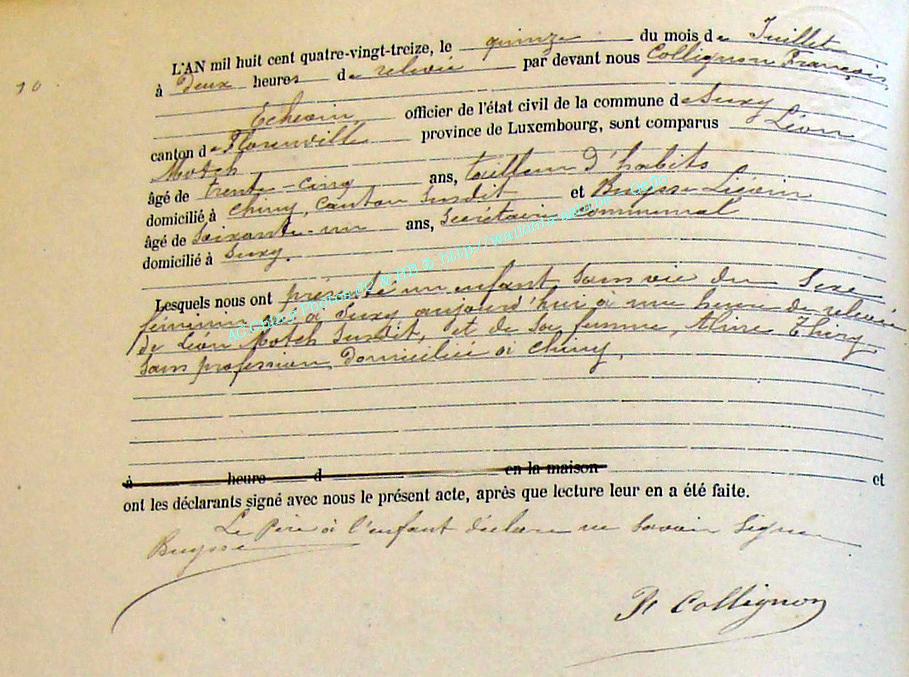 10
L'AN mil huit cent quatre-vingt-treize, le quinze du mois de Juillet
à deux heures de relevée par devant nous Collignon François,
Echevin, officier de l'état civil de la commune de Suxy
canton de Florenville province de Luxembourg, sont comparus Léon
Motch
âgé de trente-cinq ans, tailleur d'habits
domicilié à Chiny, canton susdit et Buysse Liévin
âgé de Soixante-un ans, Secrétaire communal
domicilié à Suxy.
Lesquels nous ont présenté un enfant sans vie du Sexe
féminin né à Suxy aujourd'hui à une heure de relevée
de Léon Motch Susdit, et de Sa femme,
Sans profession, domiciliée à Chiny.
à heure d en la maison et
ont les déclarants signé avec nous le présent acte, après que lecture leur en a été faite.
Le Père à l'enfant déclare ne Savoir Signer
Buysse
Fs Collignon